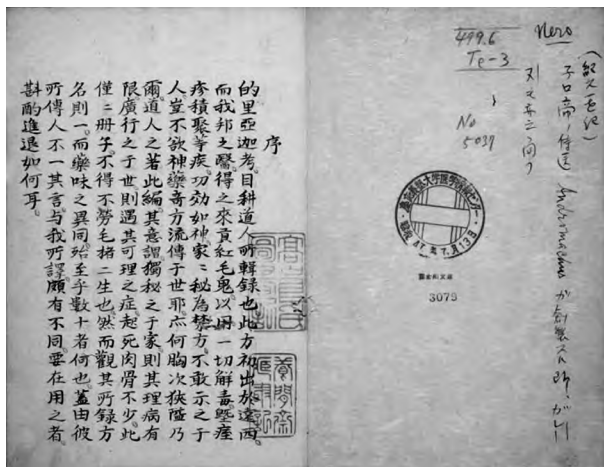 Nero
(紀元一世紀)
ノ侍医 Andromachus が創製
499.6
Te-3
No
5037
3075
序
的里亞迦考。目耕道人所輯錄也此方初出於遠西。
而我邦之醫得之來貢紅毛鬼以用一切解毒
疹積聚等疾功効如神家〻秘為禁方不敢示之于
人豈不欲神藥奇方流傳于世耶。亦何胸次狹隘乃
爾道人之若此編其意謂獨秘之于家則其理病有
限廣行之于世則遇其可理之症起死肉骨不少。此
僅二冊子不得不勞毛楮二生也然而觀其所錄方
名則一。而藥味之異同殆至乎數十者何也蓋由彼
所傳人不一其言与我所譯頗有不同要在用之者
斟酌進退如何耳。